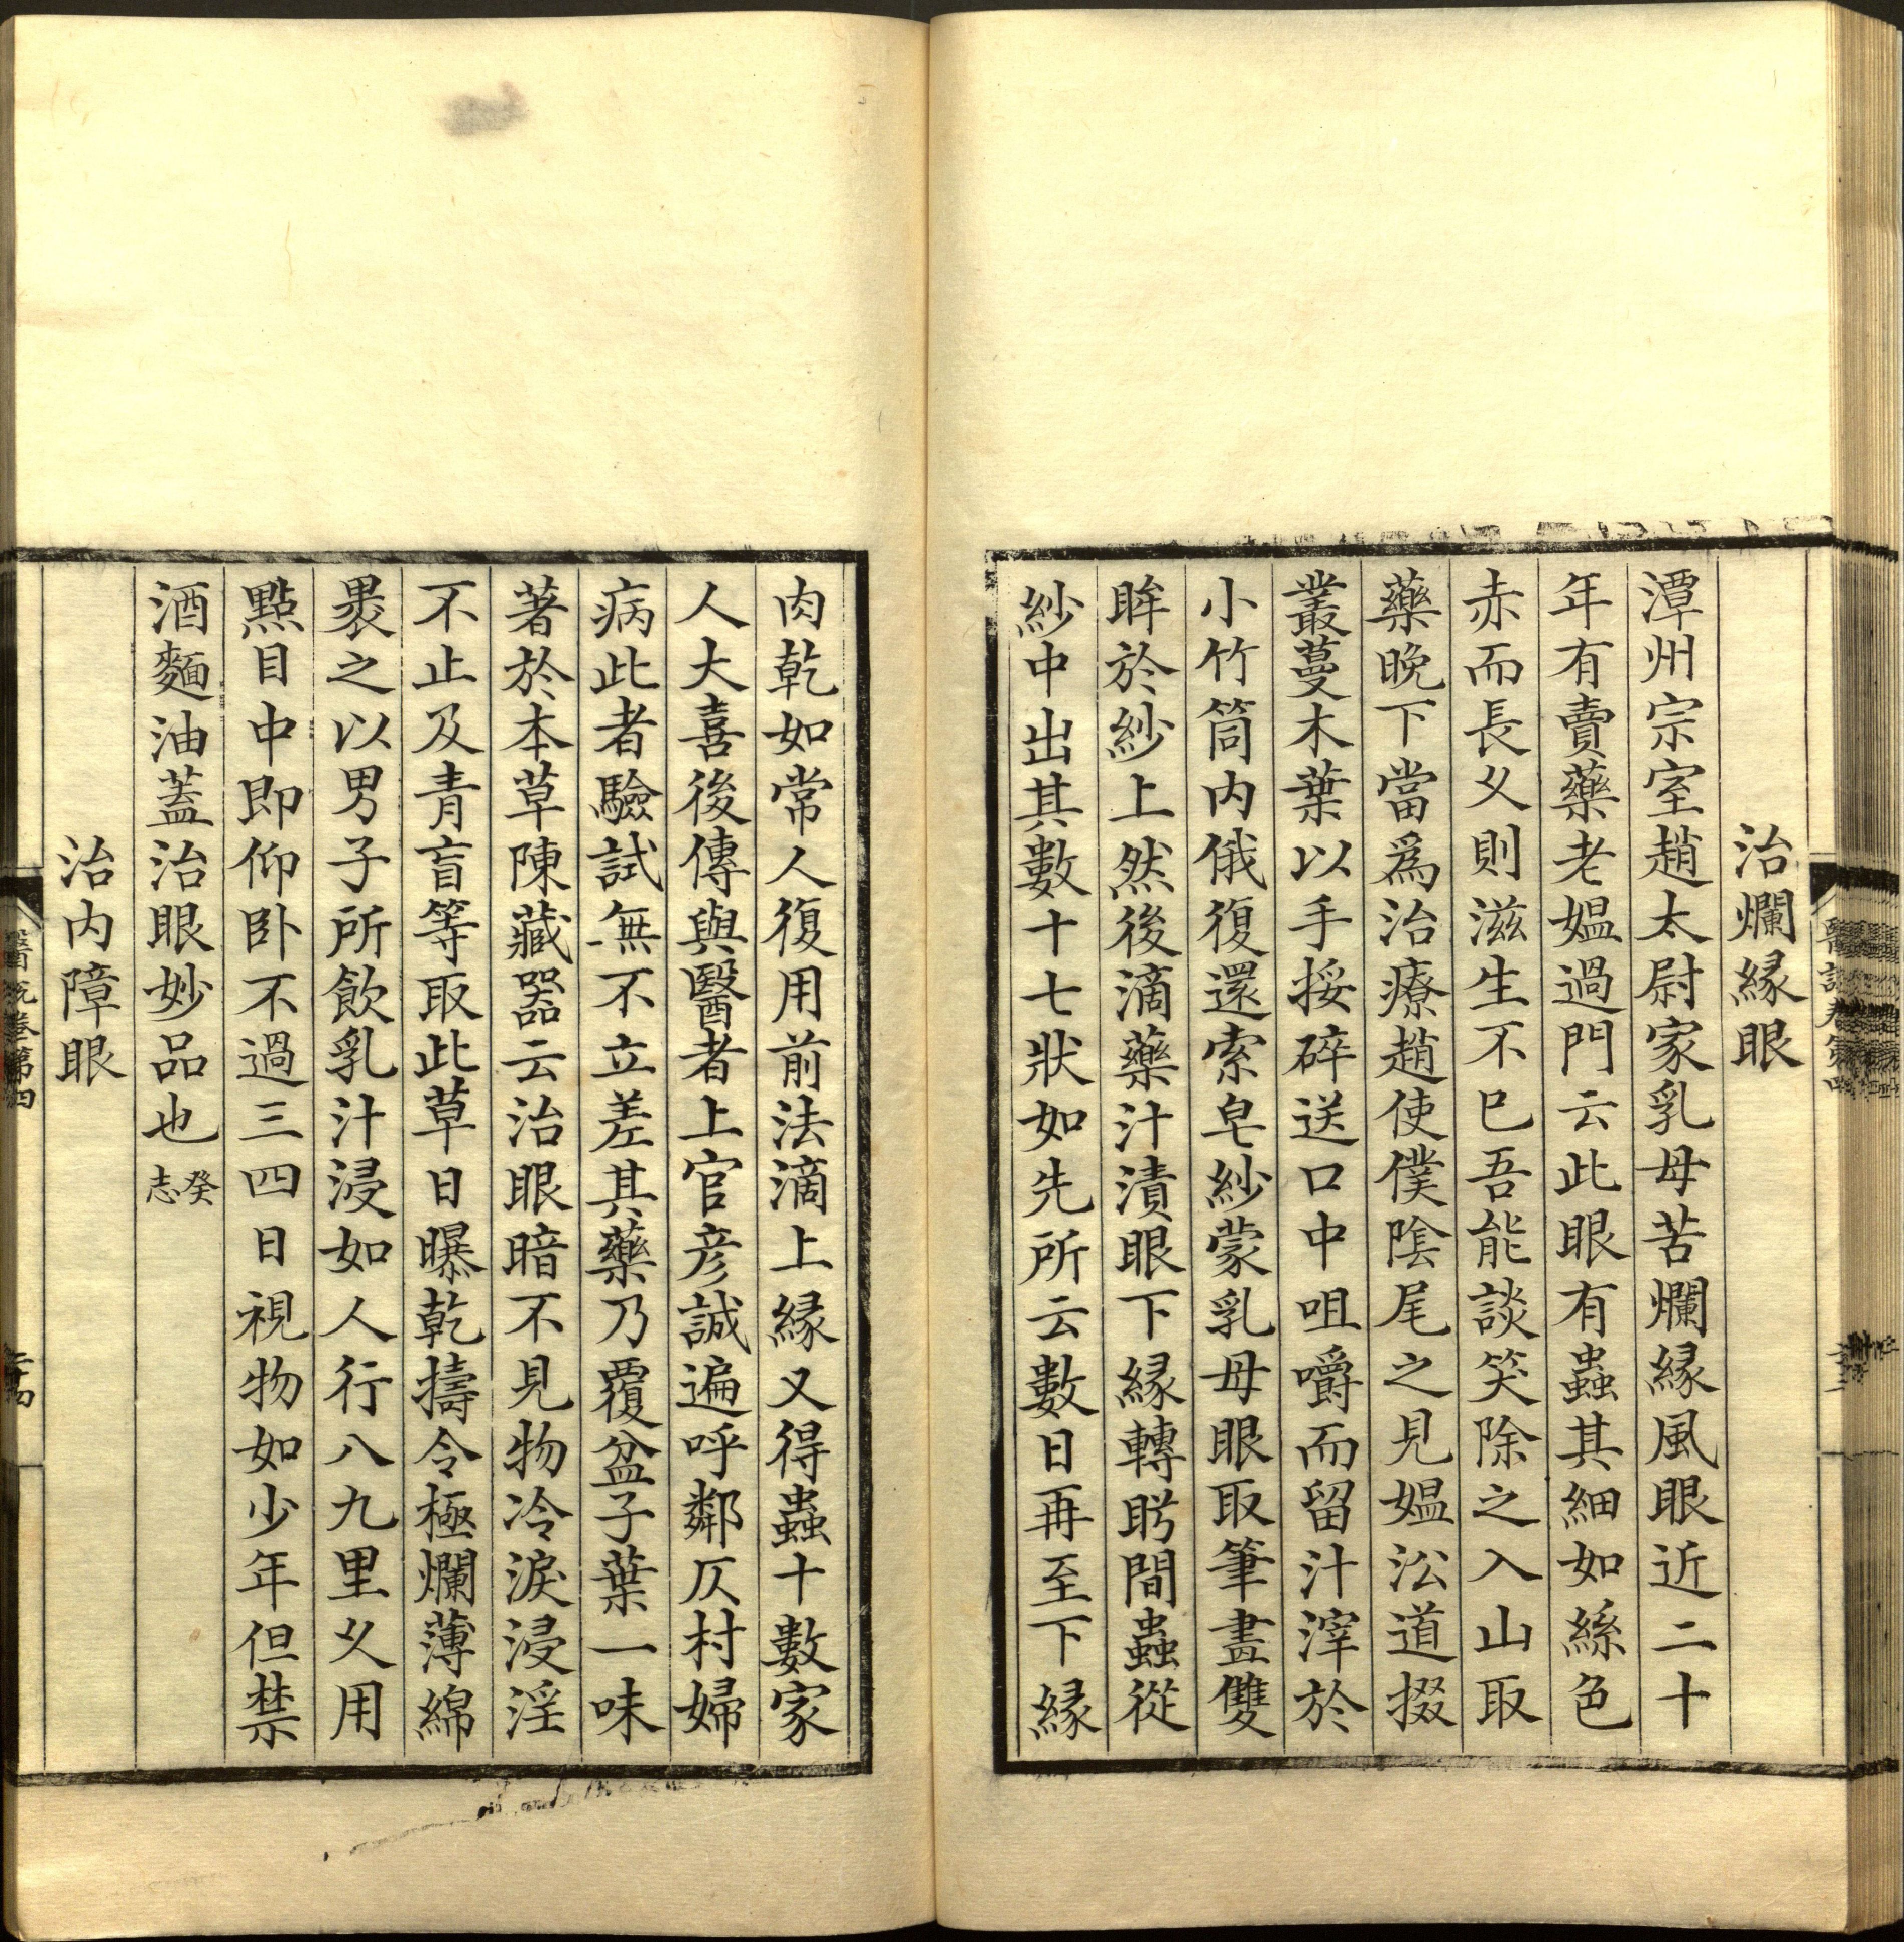 治爛縁眼
潭州宗室趙太尉家乳母苦爛縁風眼近二十
年有賣藥老媪過門云此眼有蟲其細如絲色
赤而長乆則滋生不巳吾能談笑除之入山取
藥晚下當爲治療趙使僕隂尾之見媪㳂道掇
叢蔓木葉以手挼碎送口中咀嚼而留汁滓於
小竹筒内俄復還索皂紗蒙乳母眼取筆畫雙
眸於紗上然後滴藥汁漬眼下縁轉眄間蟲從
紗中出其數十七狀如先所云數日再至下縁
肉乾如常人復用前法滴上縁又得蟲十數家
人大喜後傳與醫者上官彦誠遍呼鄰仄村婦
病此者驗試無不立差其藥乃覆盆子葉一味
著於本草陳藏器云治眼暗不見物冷淚浸淫
不止及青盲等取此草日曝乾擣令極爛薄綿
裹之以男子所飲乳汁浸如人行八九里乆用
點目中即仰卧不過三四日視物如少年但禁
酒麵油蓋治眼妙品也癸志
治内障眼
醫説卷第四
二十四